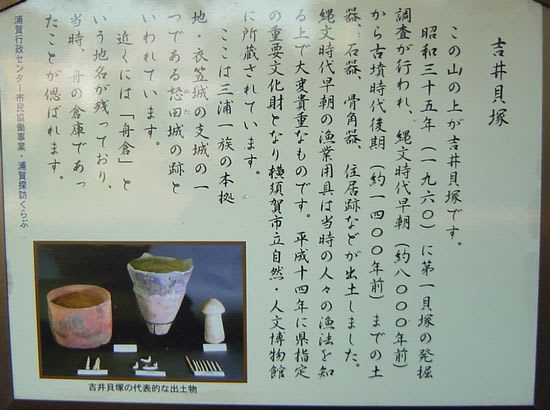 吉井貝塚
この山の上が吉井貝塚です。
昭和三十五年（一九六〇）に第一貝塚の発掘
調査が行われ、縄文時代早朝（約八〇〇〇年前）
から古墳時代後期（約一四〇〇年前）までの土
器、石器、骨角器、住居跡などが出土しました。
縄文時代早朝の漁業用具は当時の人々の漁法を知
る上で大変貴重なものです。平成十四年に県指定
の重要文化財となり横須賀市立自然・人文博物館
に所蔵されています。
ここは三浦一族の本拠
地・衣笠城の支城の一
つである怒田城の跡と
いわれています。
近くには「舟倉」と
いう地名が残っており、
当時、舟の倉庫であっ
たことが偲ばれます。
浦賀行政センター市民協働事業・浦賀探訪くらぶ
吉井貝塚の代表的な出土物